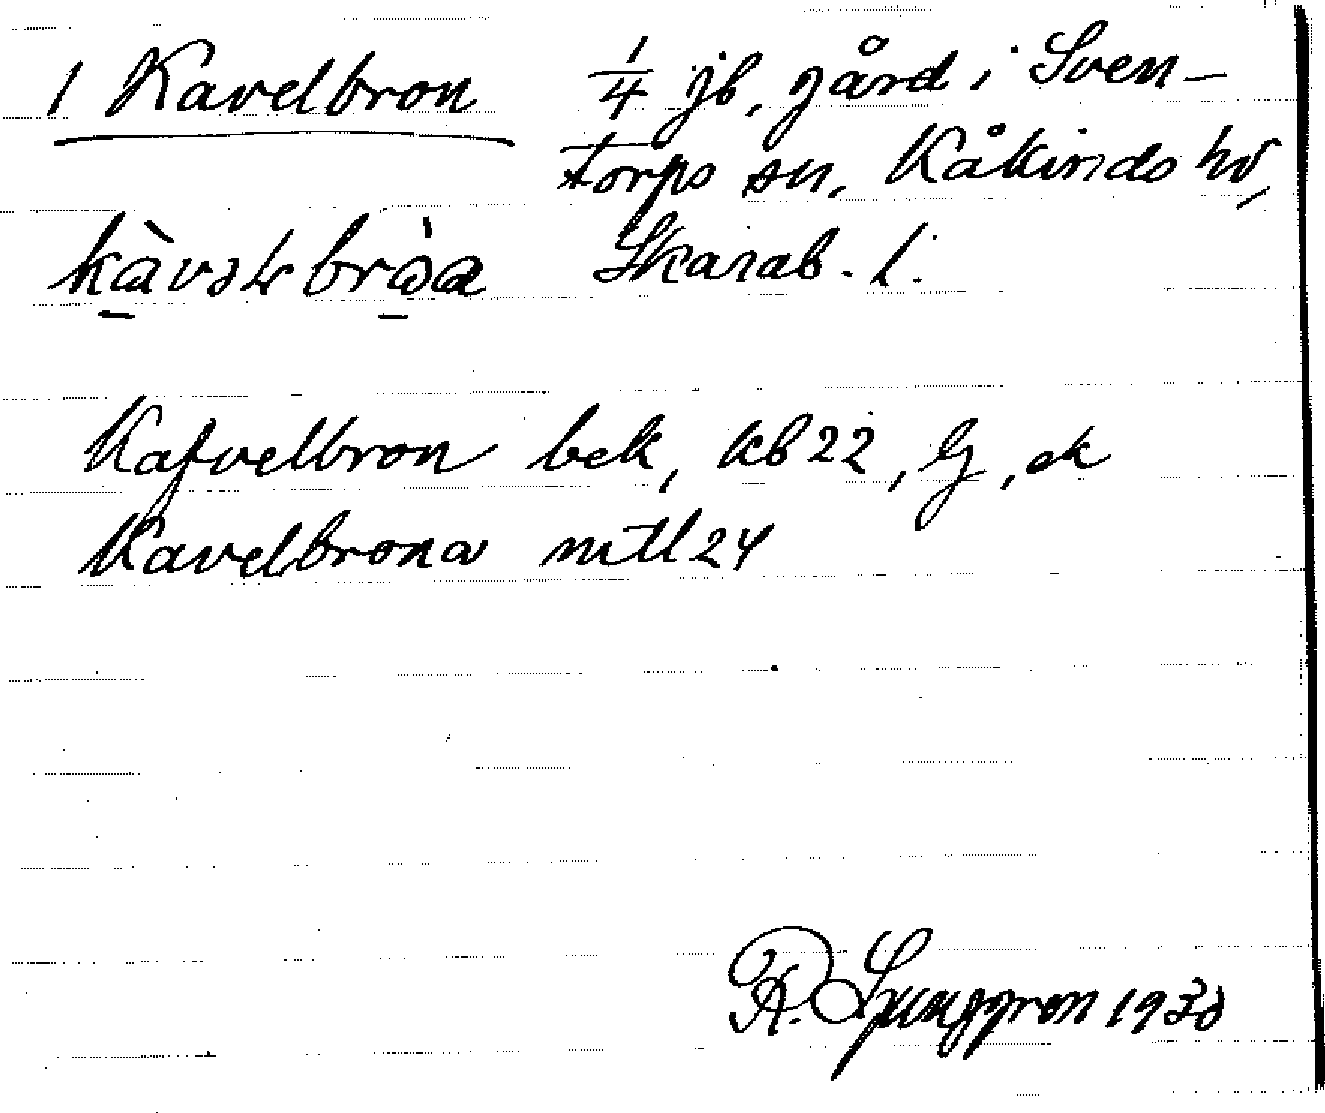 1 Kavelbron 1/4 jb, gård i Sven-
torps sn, Kåkinds hd,
Skarab. l.
Kafvelbron bek, kb 22, Gj, ek
Kavelbrona mtl 24
R. Ljunggren 1930